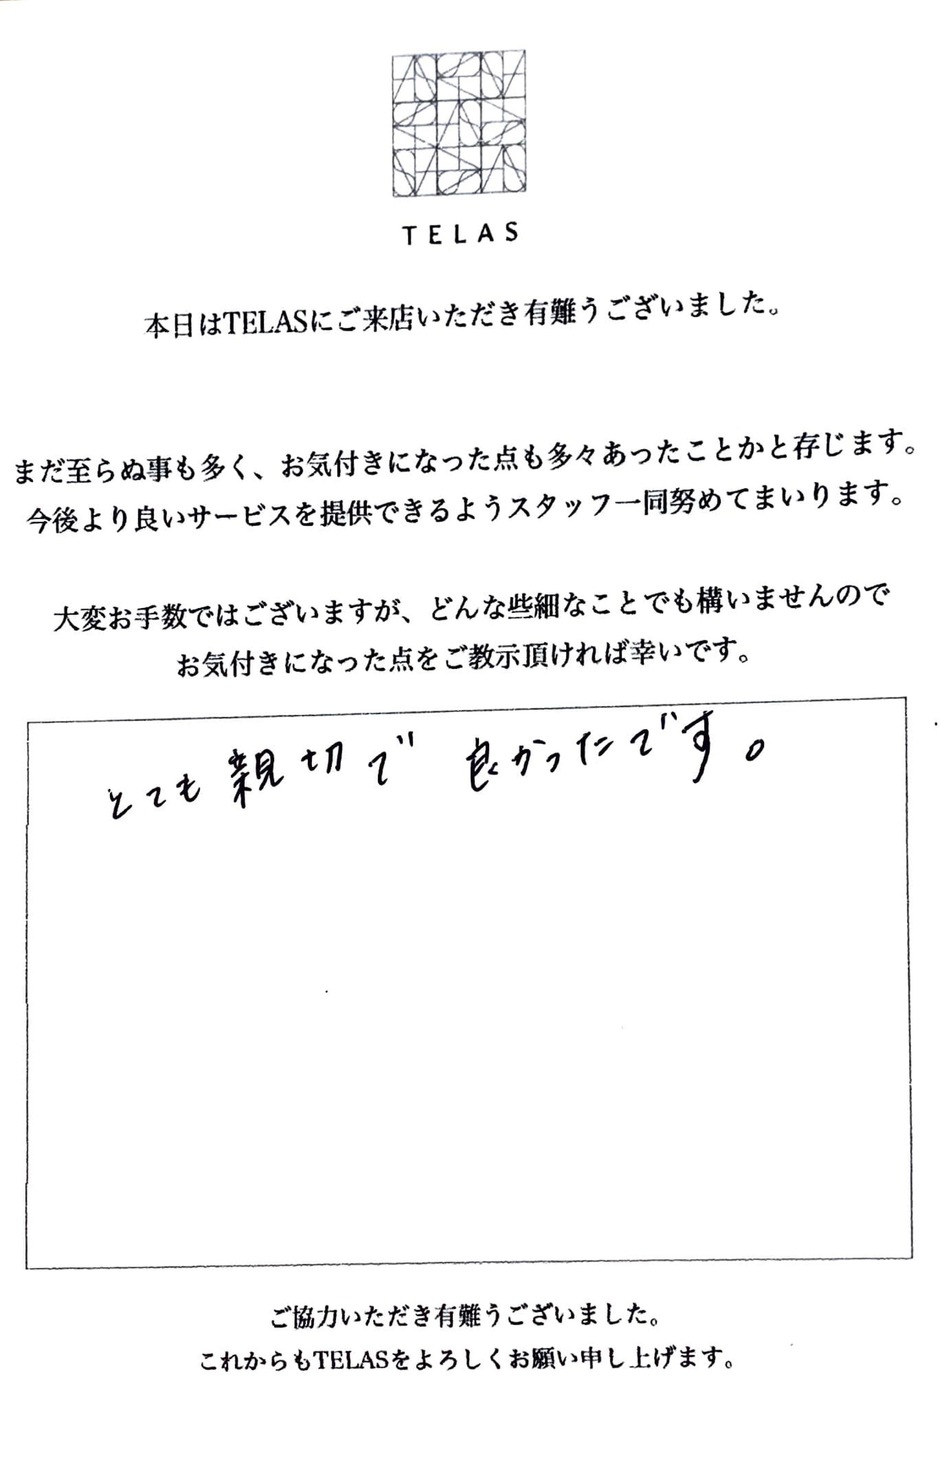 TELAS
本日はTELASにご来店いただき有難うございました。
まだ至らぬ事も多く、お気付きになった点も多々あったことかと存じます。
今後より良いサービスを提供できるようスタッフ一同努めてまいります。
大変お手数ではございますが、どんな些細なことでも構いませんので
お気付きになった点をご教示頂ければ幸いです。
とても親切で 良かったです。
ご協力いただき有難うございました。
これからもTELASをよろしくお願い申し上げます。